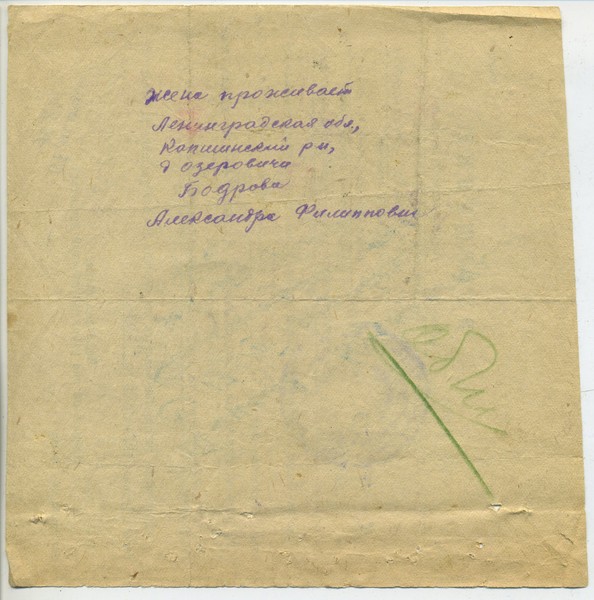 жена проживает
Ленинградская обл,
Капшинский р-н,
д озеровичи
Бодрова
Александра Филиппов